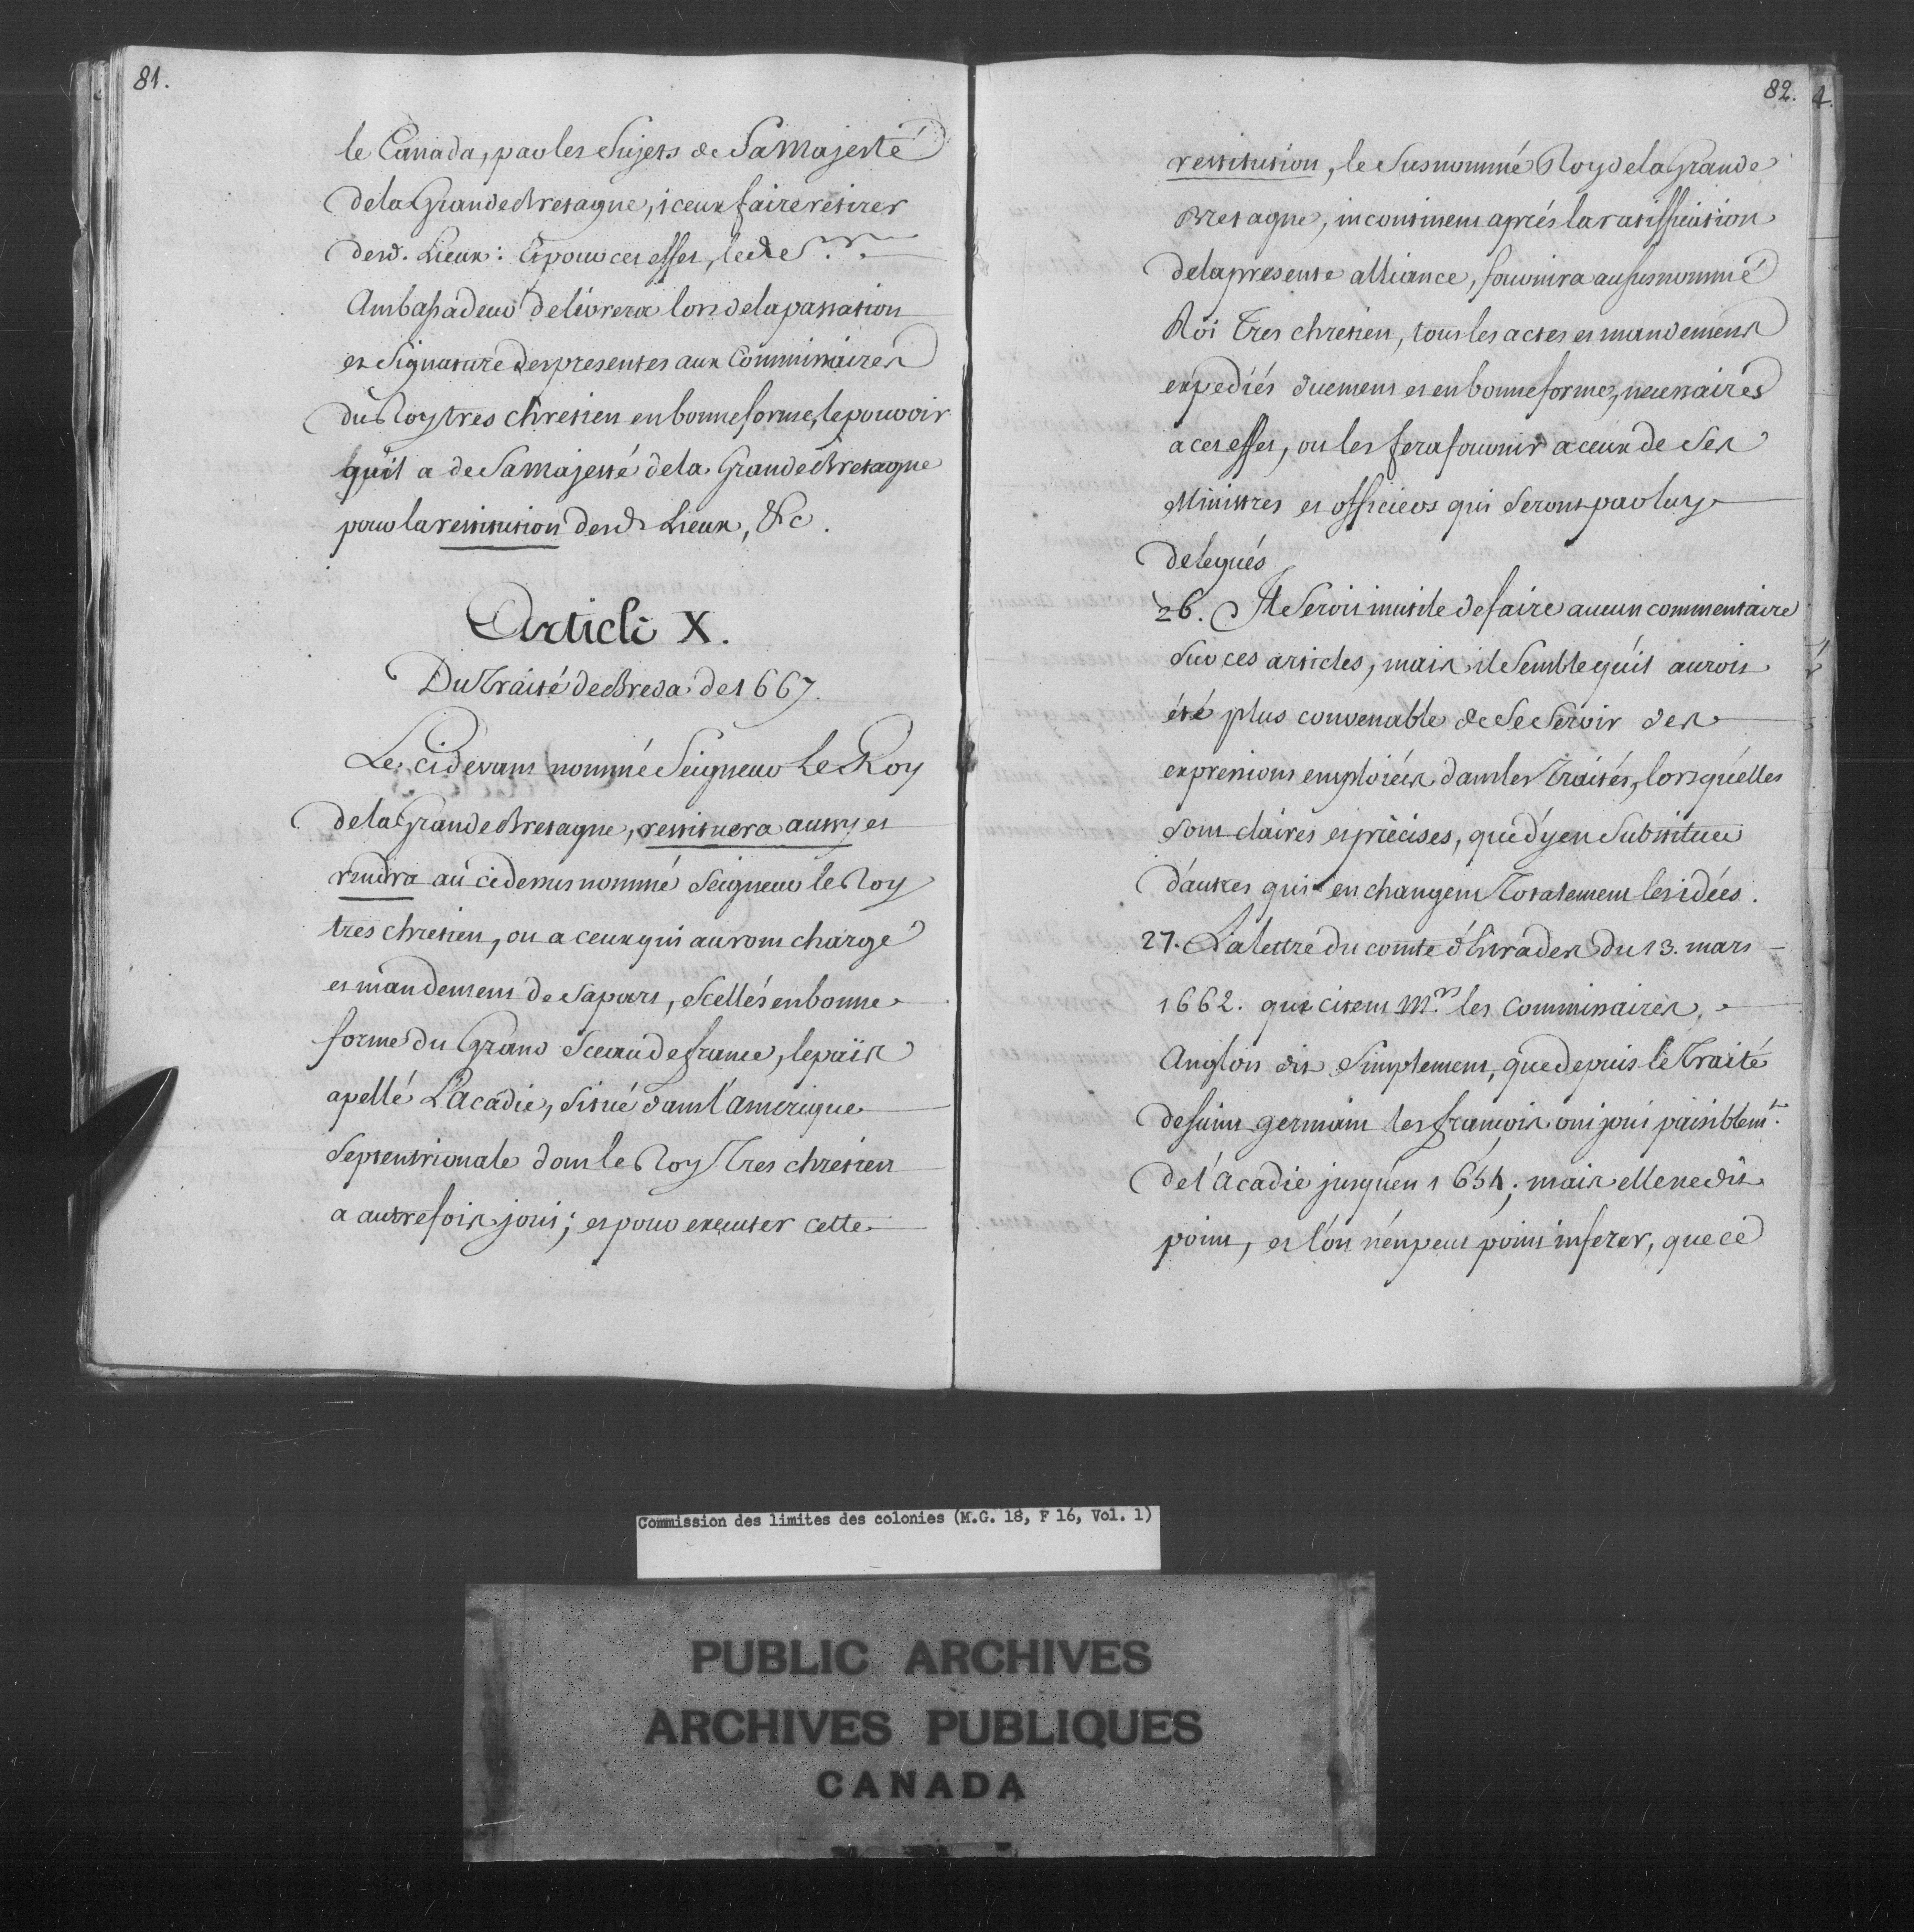 81.
le Canada, par les Sujets de Sa Majesté
de la Grande Bretagne, iceux faire retirer
desd. Lieux: Et pour cet effet, led. S.r
Ambassadeur delivrera lors de la passation
et Signature des presentes aux Commissaires
du Roy tres chretien en bonne forme, le pouvoir
qu'il a de Sa Majesté de la Grande Bretagne
pour la restitution desd. Lieux, &c.
Article X.
Du Traité de Breda de 1667.
Le cidevant nommé Seigneur Le Roy
de la Grande Bretagne, restituera aussy et
rendra au cidessus nommé Seigneur le Roy
tres chretien, ou a ceux qui auront charge
et mandement de sa part, scellés en bonne
forme du Grand Sceau de france, le païs
apellé L'Acadie, situé dans l'amerique
Septentrionale dont le Roy Tres chretien
a autrefois joui; et pour executer cette
82.
4.
restitution, le Susnommé Roy de la Grande
Bretagne, incontinent aprés la ratiffication
de la presente alliance, fournira au susnommé
Roi Tres chretien, tous les actes et mandemens
expediés duement et en bonne forme, necessaires
a cet effet, ou les fera fournir a ceux de Ses
Ministres et officiers qui Seront par luy
delegués
26. Il Seroit inutile de faire aucun commentaire
Sur ces articles, mais il Semble qu'il auroit
été plus convenable de Se Servir des
expressions emploiées dans les Traités, lorsqu'elles
Sont claires et précises, que d'y en Substituer
d'autres qui en changent Totalement les idées.
27. La lettre du comte d'Estrades du 13. mars
1662. que citent M.rs les Commissaires
Anglois dit Simplement, que depuis le Traité
de saint germain les françois ont joui paisiblem.t
de l'Acadie jusqu'en 1654; mais elle ne dit
point, et l'on n'en peut point inferer, que ce
Commission des limites des colonies (M.G. 18, F 16, Vol. 1)
PUBLIC ARCHIVES
ARCHIVES PUBLIQUES
CANADA